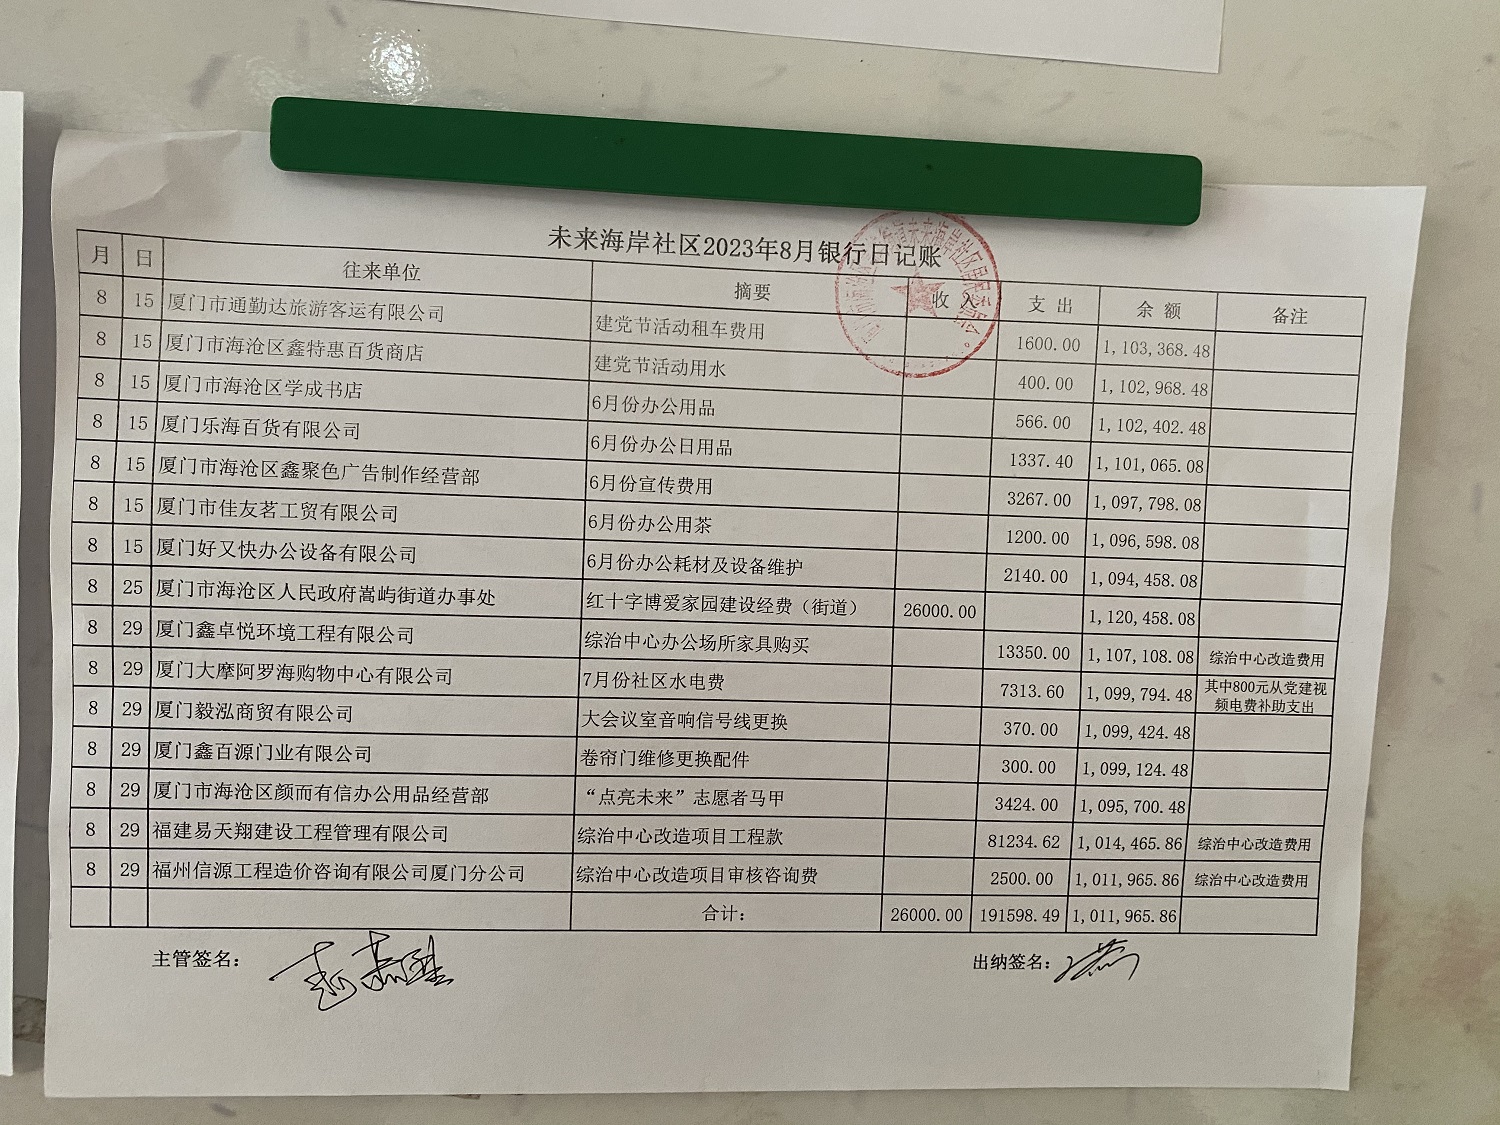 未来海岸社区2023年8月银行日记账
月 日 往来单位 摘要 收 入 支 出 余 额 备注
8 15 厦门市通勤达旅游客运有限公司 建党节活动租车费用 1600.00 1,103,368.48
8 15 厦门市海沧区鑫特惠百货商店 建党节活动用水 400.00 1,102,968.48
8 15 厦门市海沧区学成书店 6月份办公用品 566.00 1,102,402.48
8 15 厦门乐海百货有限公司 6月份办公日用品 1337.40 1,101,065.08
8 15 厦门市海沧区鑫聚色广告制作经营部 6月份宣传费用 3267.00 1,097,798.08
8 15 厦门市佳友茗工贸有限公司 6月份办公用茶 1200.00 1,096,598.08
8 15 厦门好又快办公设备有限公司 6月份办公耗材及设备维护 2140.00 1,094,458.08
8 25 厦门市海沧区人民政府嵩屿街道办事处 红十字博爱家园建设经费（街道） 26000.00 1,120,458.08
8 29 厦门鑫卓悦环境工程有限公司 综治中心办公场所家具购买 13350.00 1,107,108.08 综治中心改造费用
8 29 厦门大摩阿罗海购物中心有限公司 7月份社区水电费 7313.60 1,099,794.48 其中800元从党建视
频电费补助支出
8 29 厦门毅泓商贸有限公司 大会议室音响信号线更换 370.00 1,099,424.48
8 29 厦门鑫百源门业有限公司 卷帘门维修更换配件 300.00 1,099,124.48
8 29 厦门市海沧区颜而有信办公用品经营部 “点亮未来”志愿者马甲 3424.00 1,095,700.48
8 29 福建易天翔建设工程管理有限公司 综治中心改造项目工程款 81234.62 1,014,465.86 综治中心改造费用
8 29 福州信源工程造价咨询有限公司厦门分公司 综治中心改造项目审核咨询费 2500.00 1,011,965.86 综治中心改造费用
合计： 26000.00 191598.49 1,011,965.86
主管签名： 出纳签名：